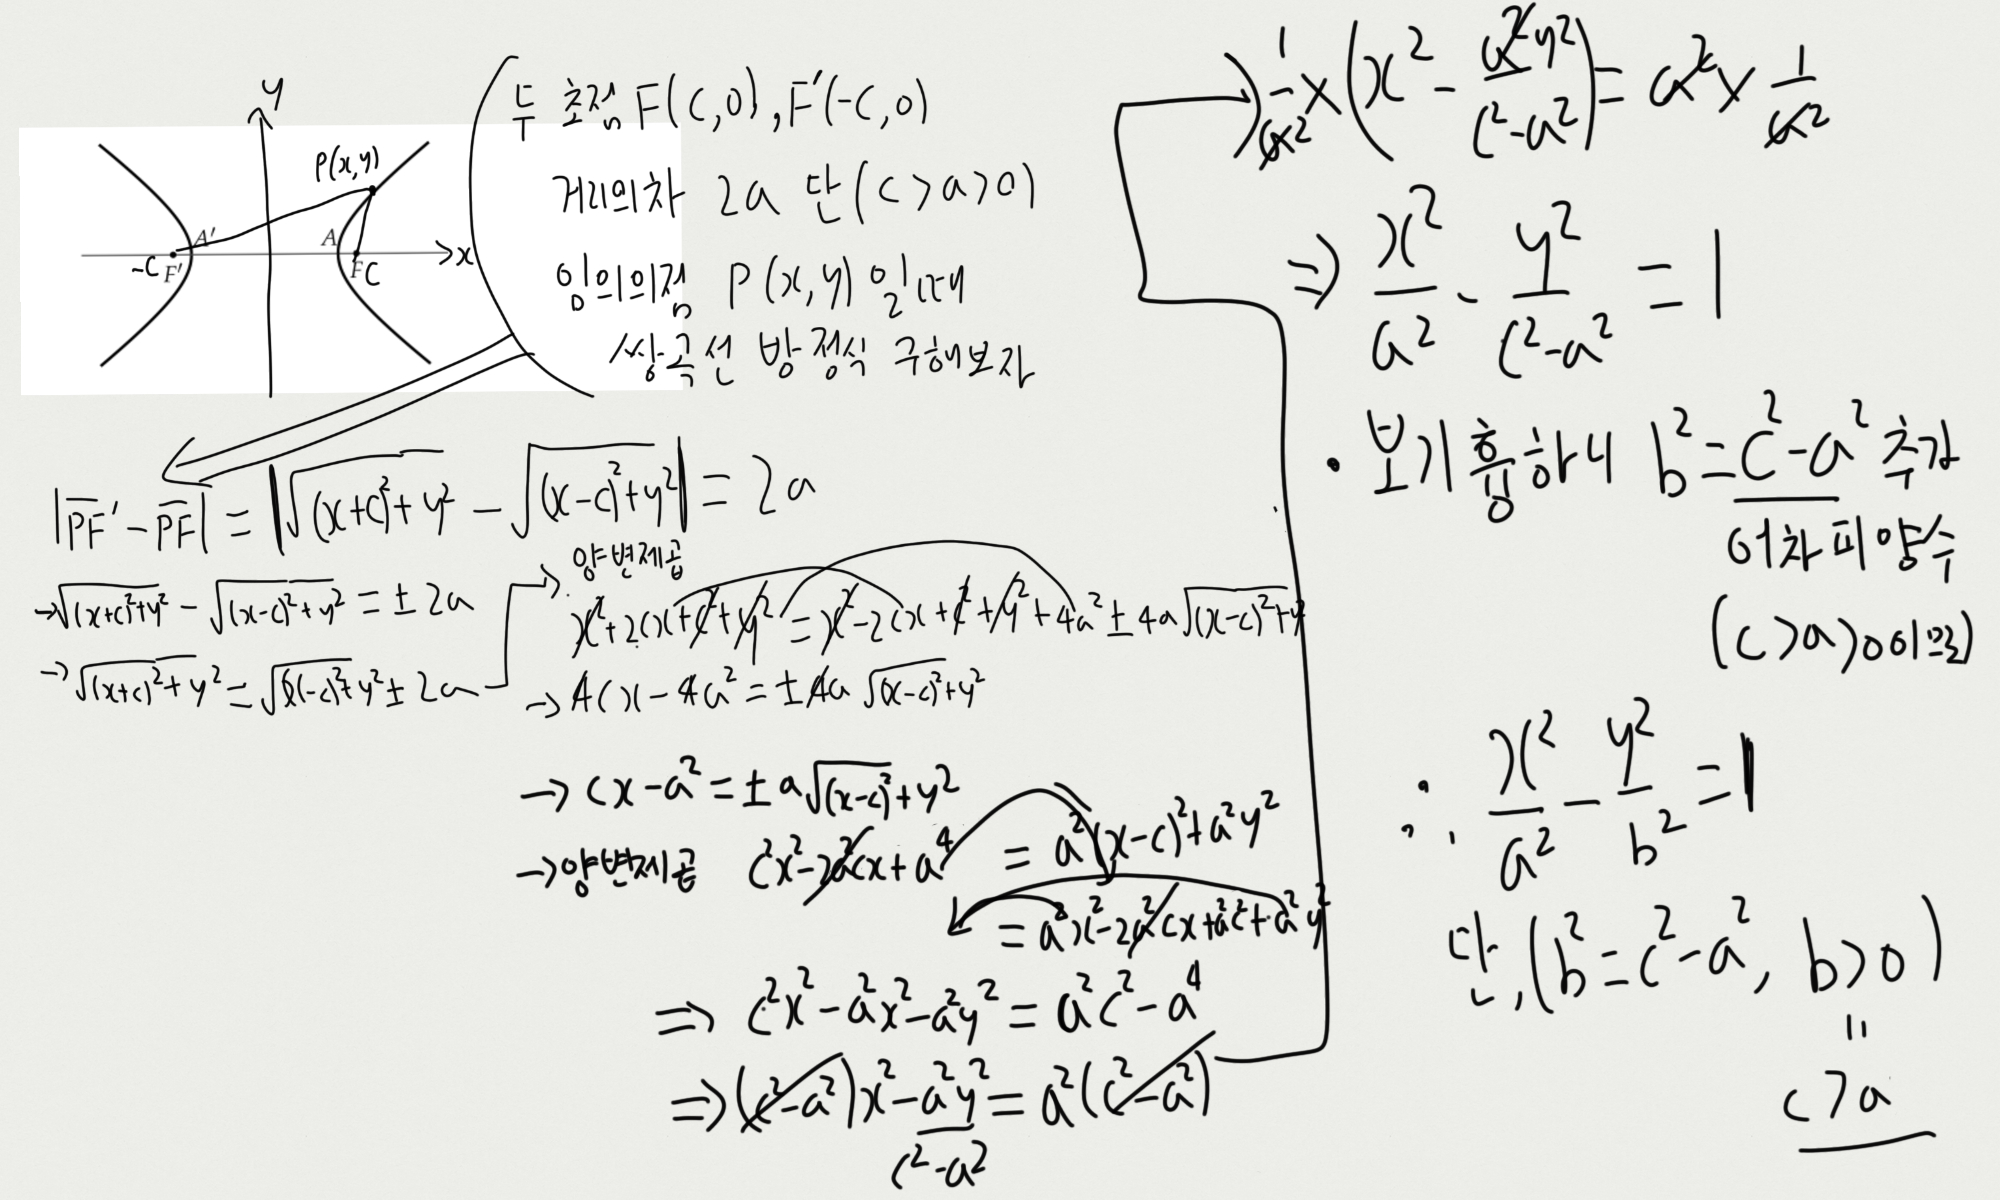 y
P(x,y)
A'
A
x
-C F'
F C
두 초점 F(c,0), F'(-c,0)
거리의차 2a 단(c>a>0)
임의의점 P(x,y)일때
쌍곡선 방정식 구해보자
|PF' - PF| = |√(x+c)²+y² - √(x-c)²+y²| = 2a
→ √(x+c)²+y² - √(x-c)²+y² = ± 2a
→ √(x+c)²+y² = √(x-c)²+y² ± 2a
→ 양변제곱
x²+2cx+c²+y² = x²-2cx+c²+y²+4a² ± 4a√(x-c)²+y²
→ 4cx-4a² = ±4a√(x-c)²+y²
→ cx-a² = ±a√(x-c)²+y²
→ 양변제곱 c²x²-2a²cx+a⁴ = a²(x-c)²+a²y²
= a²x²-2a²cx+a²c²+a²y²
⇒ c²x²-a²x²-a²y² = a²c²-a⁴
⇒ (c²-a²)x²-a²y² = a²(c²-a²)
c²-a²
1/a² × (x² - a²y²/(c²-a²)) = a² × 1/a²
⇒ x²/a² - y²/(c²-a²) = 1
· 보기흉하니 b²=c²-a² 추가
어차피양수
(c>a>0이므로)
∴ x²/a² - y²/b² = 1
단, (b²=c²-a², b>0)
=
c>a